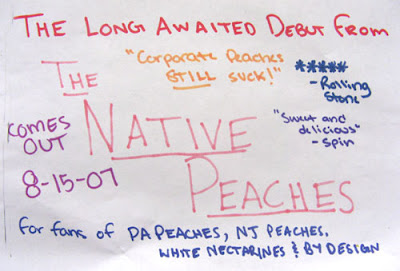 THE LONG AWAITED DEBUT FROM
"Corporate Peaches
STILL SUCK!"
*****
-Rolling
Stone
THE
NATIVE
PEACHES
"Sweet and
delicious"
-Spin
COMES
OUT
8-15-07
for fans of PA PEACHES, NJ PEACHES,
WHITE NECTARINES & BY DESIGN